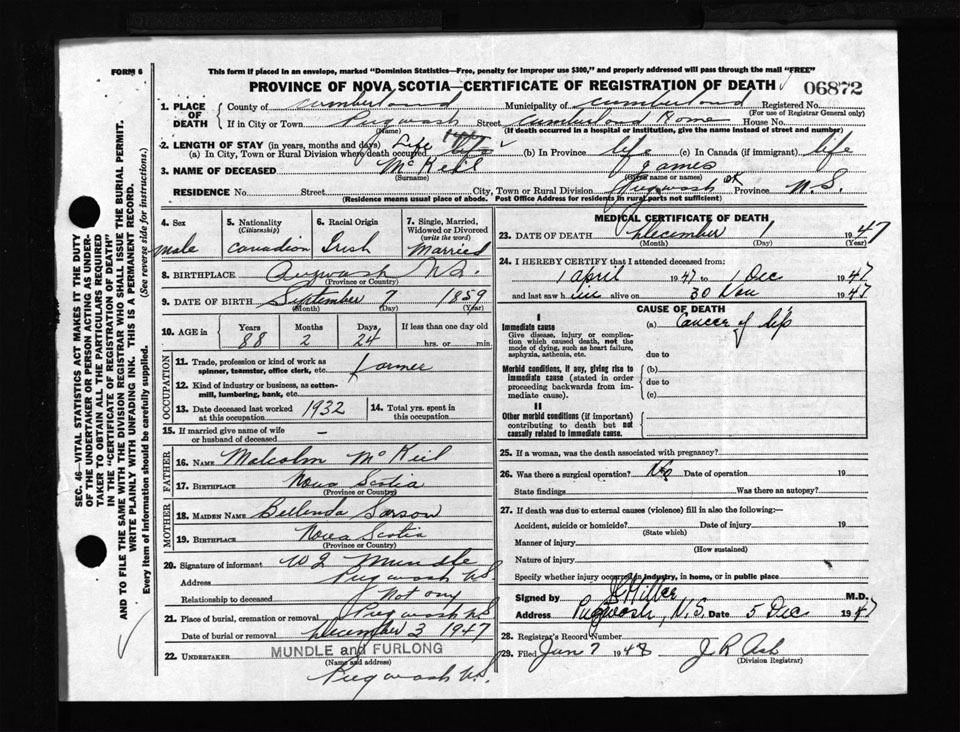 FORM 6
This form if placed in an envelope, marked "Dominion Statistics—Free, penalty for improper use $300," and properly addressed will pass through the mail "FREE"
PROVINCE OF NOVA SCOTIA—CERTIFICATE OF REGISTRATION OF DEATH 06872
1. PLACE OF DEATH County of Cumberland Municipality of Cumberland Registered No.
(For use of Registrar General only)
If in City or Town Pugwash Street Cumberland Home House No.
(Name) (If death occurred in a hospital or institution, give the name instead of street and number)
2. LENGTH OF STAY (in years, months and days)
(a) In City, Town or Rural Division where death occurred Life (b) In Province life (c) In Canada (if immigrant) life
3. NAME OF DECEASED McKeil James
(Surname) (Given name or names)
RESIDENCE No. Street City, Town or Rural Division Pugwash Province N.S.
(Residence means usual place of abode. Post Office Address for residents in rural parts not sufficient)
4. Sex Male
5. Nationality (Citizenship) Canadian
6. Racial Origin Irish
7. Single, Married, Widowed or Divorced (write the word) Married
8. BIRTHPLACE Pugwash N.S.
(Province or Country)
9. DATE OF BIRTH September 7 1859
(Month) (Day) (Year)
10. AGE in Years 88 Months 2 Days 24 If less than one day old hrs. or min.
OCCUPATION
11. Trade, profession or kind of work as spinner, teamster, office clerk, etc. farmer
12. Kind of industry or business, as cotton-mill, lumbering, bank, etc.
13. Date deceased last worked at this occupation 1932
14. Total yrs. spent in this occupation
15. If married give name of wife or husband of deceased –
FATHER
16. NAME Malcolm McKeil
17. BIRTHPLACE Nova Scotia
(Province or Country)
MOTHER
18. MAIDEN NAME Bellenda Sarson
19. BIRTHPLACE Nova Scotia
(Province or Country)
20. Signature of informant Mundle
Address Pugwash N.S.
Relationship to deceased Not any
21. Place of burial, cremation or removal Pugwash N.S.
Date of burial or removal December 3 1947
22. UNDERTAKER MUNDLE and FURLONG
(Name and address)
Pugwash N.S.
MEDICAL CERTIFICATE OF DEATH
23. DATE OF DEATH December 1 1947
(Month) (Day) (Year)
24. I HEREBY CERTIFY that I attended deceased from:
1 April 1947 to 1 Dec 1947
and last saw him alive on 30 Nov 1947
CAUSE OF DEATH
I
Immediate cause (a) Cancer of lip
Give disease, injury or complication which caused death, not the mode of dying, such as heart failure, asphyxia, asthenia, etc. due to
Morbid conditions, if any, giving rise to immediate cause (stated in order proceeding backwards from immediate cause). (b)
due to
(c)
II
Other morbid conditions (if important) contributing to death but not causally related to immediate cause.
25. If a woman, was the death associated with pregnancy?
26. Was there a surgical operation? No Date of operation 19
State findings Was there an autopsy?
27. If death was due to external causes (violence) fill in also the following:—
Accident, suicide or homicide? Date of injury 19
(State which)
Manner of injury
(How sustained)
Nature of injury
Specify whether injury occurred in industry, in home, or in public place
Signed by Hiltz M.D.
Address Pugwash, N.S. Date 5 Dec 1947
28. Registrar's Record Number
29. Filed Jan 7 1948 J R Ash
(Division Registrar)
SEC. 46—VITAL STATISTICS ACT MAKES IT THE DUTY
OF THE UNDERTAKER OR PERSON ACTING AS UNDER-
TAKER TO OBTAIN ALL THE PARTICULARS REQUIRED
IN THE "CERTIFICATE OF REGISTRATION OF DEATH"
AND TO FILE THE SAME WITH THE DIVISION REGISTRAR WHO SHALL ISSUE THE BURIAL PERMIT.
WRITE PLAINLY WITH UNFADING INK. THIS IS A PERMANENT RECORD.
Every item of information should be carefully supplied. (See reverse side for instructions.)